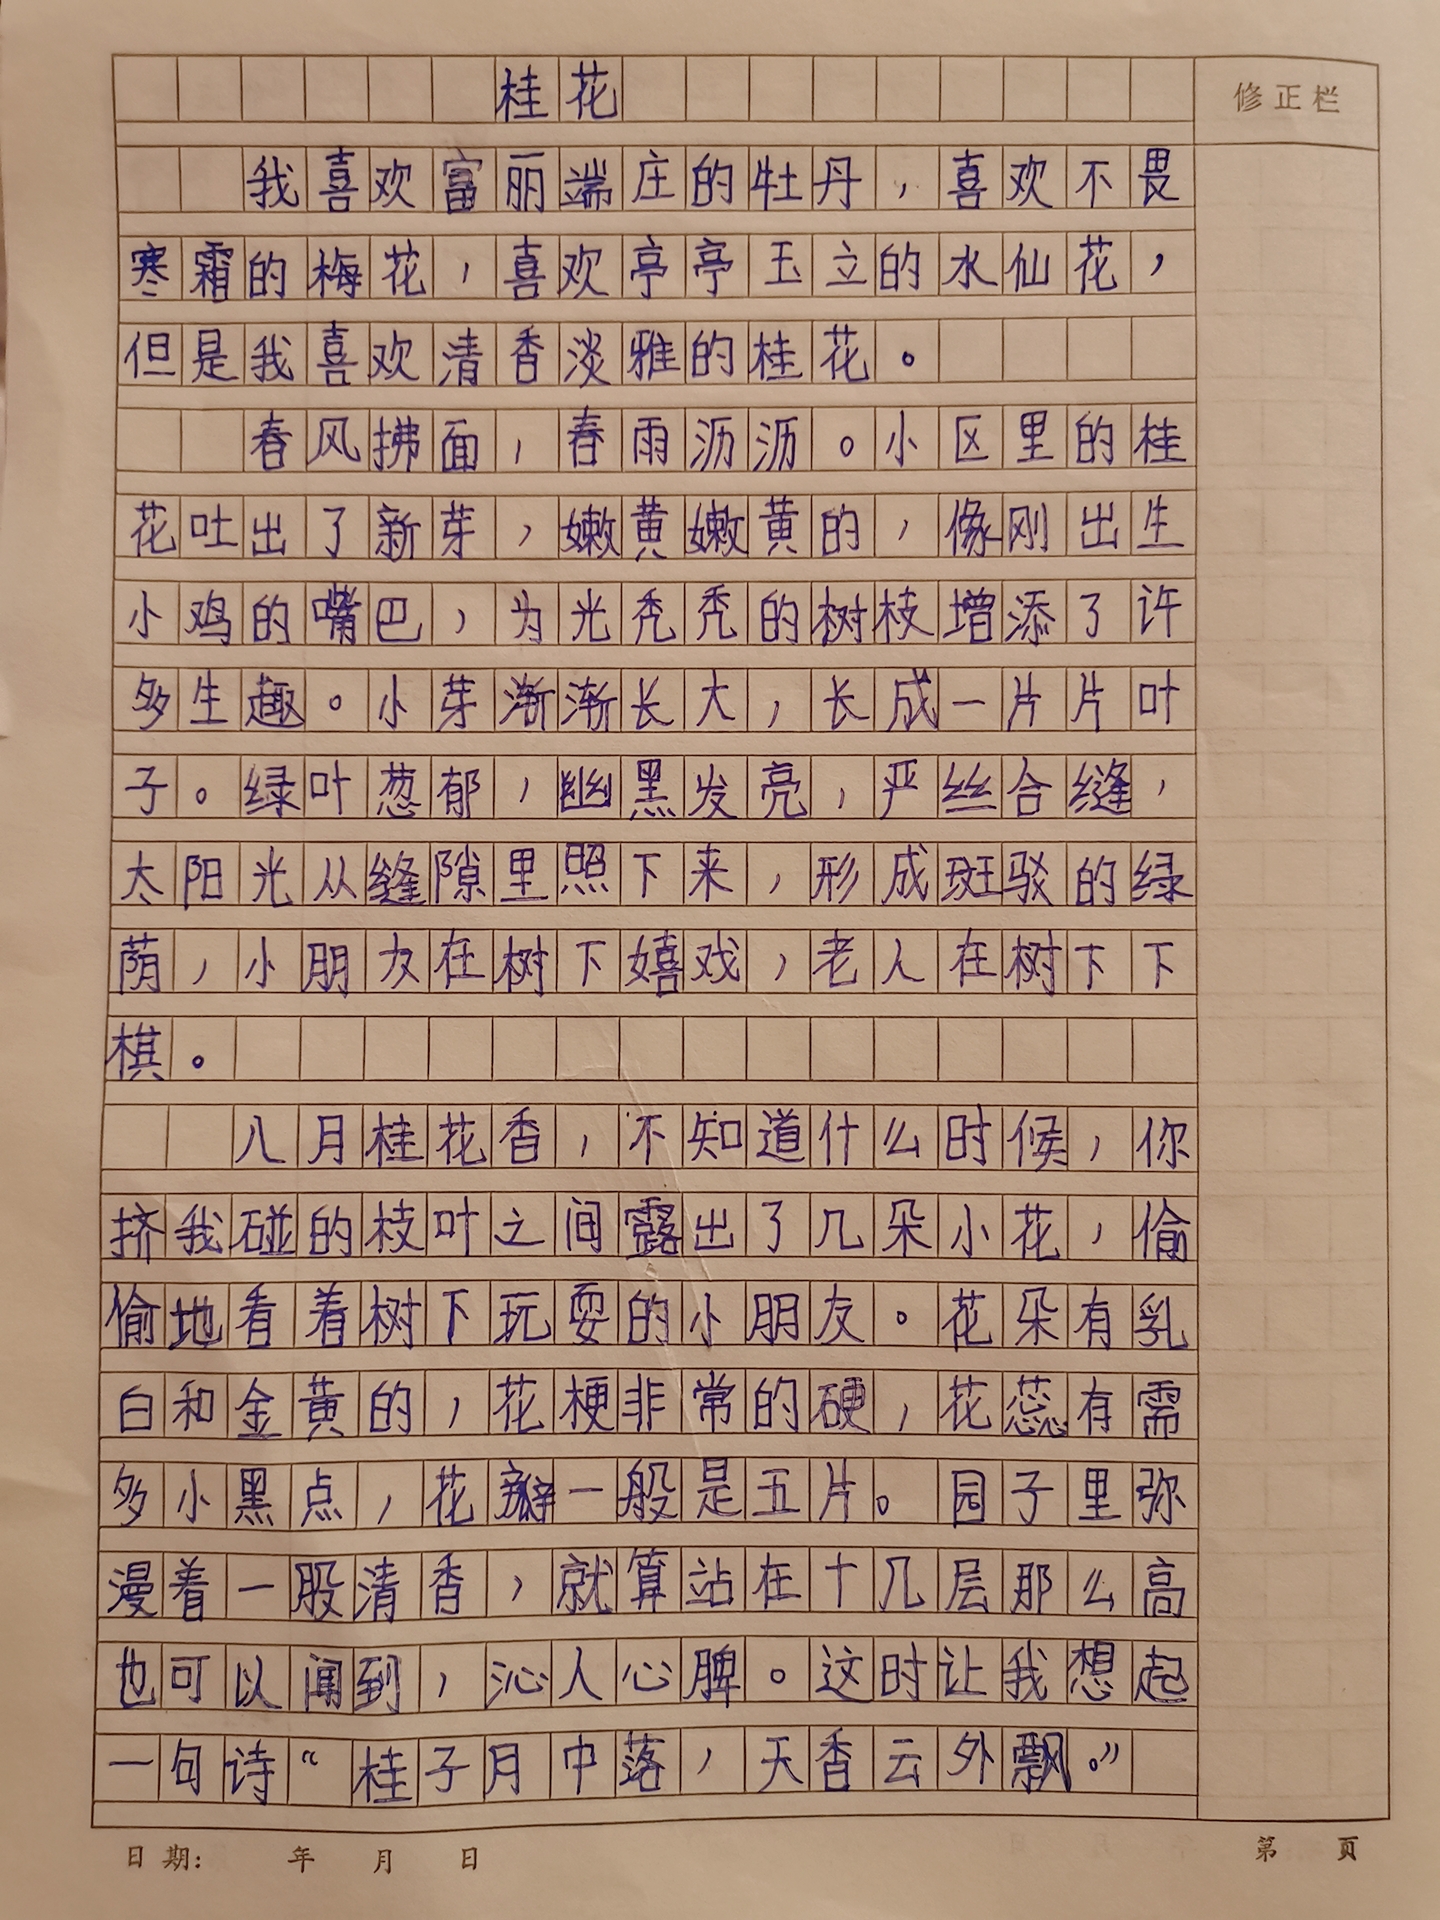 桂花
修正栏
我喜欢富丽端庄的牡丹，喜欢不畏
寒霜的梅花，喜欢亭亭玉立的水仙花，
但是我喜欢清香淡雅的桂花。
春风拂面，春雨沥沥。小区里的桂
花吐出了新芽，嫩黄嫩黄的，像刚出生
小鸡的嘴巴，为光秃秃的树枝增添了许
多生趣。小芽渐渐长大，长成一片片叶
子。绿叶葱郁，幽黑发亮，严丝合缝，
太阳光从缝隙里照下来，形成斑驳的绿
荫，小朋友在树下嬉戏，老人在树下下
棋。
八月桂花香，不知道什么时候，你
挤我碰的枝叶之间露出了几朵小花，偷
偷地看着树下玩耍的小朋友。花朵有乳
白和金黄的，花梗非常的硬，花蕊有需
多小黑点，花瓣一般是五片。园子里弥
漫着一股清香，就算站在十几层那么高
也可以闻到，沁人心脾。这时让我想起
一句诗“桂子月中落，天香云外飘。”
日期：　年　月　日
第　页